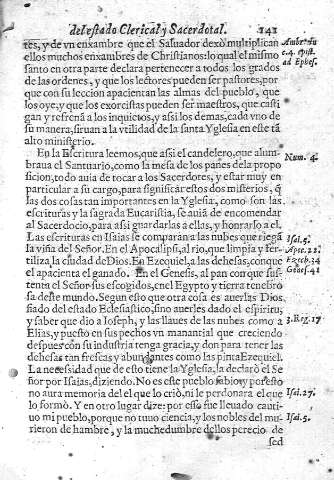 del estado Clerical y Sacerdotal. 141
res, y de vn enxambre que el Saluador dexò multiplican
ellos muchos enxambres de Christianos: lo qual el mismo
santo en otra parte declara pertenecer a todos los grados
de las ordenes, y que los lectores pueden ser pastores, por
que con su leccion apacientan las almas del pueblo, que
los oye, y que los exorcistas pueden ser maestros, que casti
gan y refrenā a los inquietos, y assi los demas, cada vno de
su manera, siruan a la vtilidad de la santa Yglesia en este tā
alto ministerio.
En la Escritura leemos, que assi el candelero, que alum-
braua el Santuario, como la mesa de los panes de la propo
sicion, todo auia de tocar a los Sacerdotes, y estar muy en
particular a su cargo, para significar estos dos misterios, q̃
las dos cosas tan importantes en la Yglesia, como son las
escrituras y la sagrada Eucaristia, se auiā de encomendar
al Sacerdocio, para assi guardarlas a ellas, y honrarlo a el.
Las escrituras en Isaias se comparan a las nubes que riegā
la viña del Señor. En el Apocalipsi, al rio, que limpia y fer-
tiliza la ciudad de Dios. En Ezequiel, a las dehesas, con que
el apacienta el ganado. En el Genesis, al pan con que sus-
tenta el Señor sus escogidos, en el Egypto y tierra tenebro
sa deste mundo. Segun esto que otra cosa es auerlas Dios
fiado del estado Eclesiastico, sino auerles dado el espiritu,
y saber que dio a Ioseph, y las llaues de las nubes como a
Elias, y puesto en sus pechos vn manantial que creciendo
despues con su industria tenga gracia, y don para tener las
dehesas tan frescas y abundantes como las pinta Ezequiel.
La necessidad que de esto tiene la Yglesia, la declarò el Se
ñor por Isaias, diziendo. No es este pueblo sabio, y por esto
no aura memoria del el que lo criò, ni le perdonara el que
lo formò. Y en otro lugar dize: por esso fue lleuado cauti-
uo mi pueblo, porque no tuuo ciencia, y los nobles del mu
rieron de hambre, y la muchedumbre dellos perecio de
sed
Num. 4.
Isai. 5.
Apoc. 22.
Ezech. 34
Genes. 41
3. Reg. 17
Isai. 27.
Isai. 5.